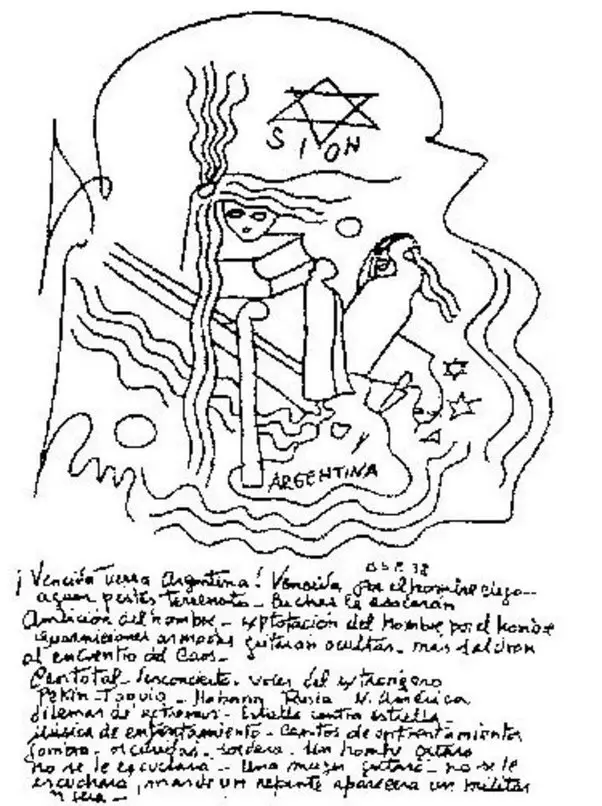 SION
ARGENTINA
B.S.P. 38
¡Vencida tierra Argentina! Vencida por el hombre ciego--
pestes Luchas la
Ambición del hombre - explotación del hombre por el hombre
armadas gritarán ocultas - mas saldrán
al encuentro del Caos -
Caos total - Desconcierto. voces del extranjero
Pekin - Habana Rusia N. América
dilemas de extremos - Estrella contra estrella -
Música de enfrentamiento - Cantos de enfrentamientos
sombra - sordera - Un hombre gritará
no se le escuchará - Una mujer gritará - no se le
escuchará, mas de un repente aparecerá un militar
y será -